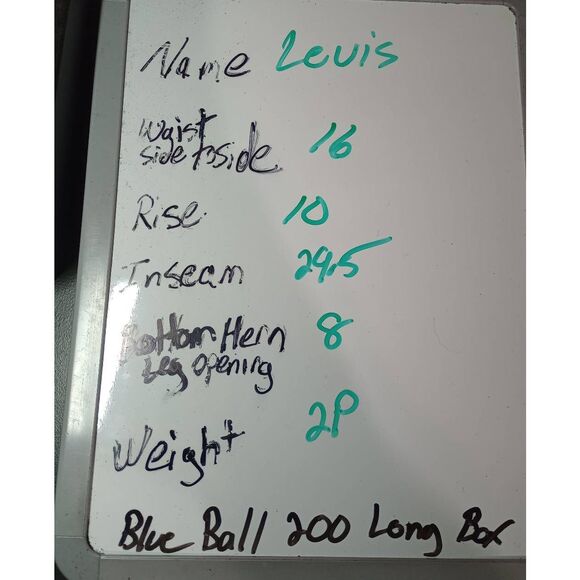 Name Levis
Waist
side to side 16
Rise 10
Inseam 29.5
Bottom Hem 8
Leg opening
Weight 2P
Blue Ball 200 Long Box